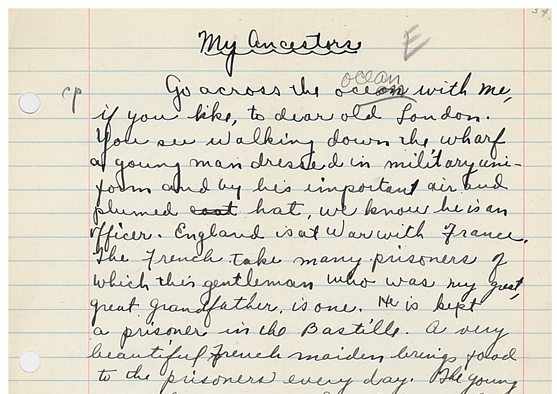 34
My Ancestors
E
ocean
cp
Go across the ocean with me,
if you like, to dear old London.
You see walking down the wharf
a young man dressed in military uni-
form and by his important air and
plumed coat hat, we know he is an
officer. England is at War with France.
The French take many prisoners of
which this gentleman who was my great,
great grandfather, is one. He is kept
a prisoner in the Bastille. A very
beautiful French maiden brings food
to the prisoners every day. The young